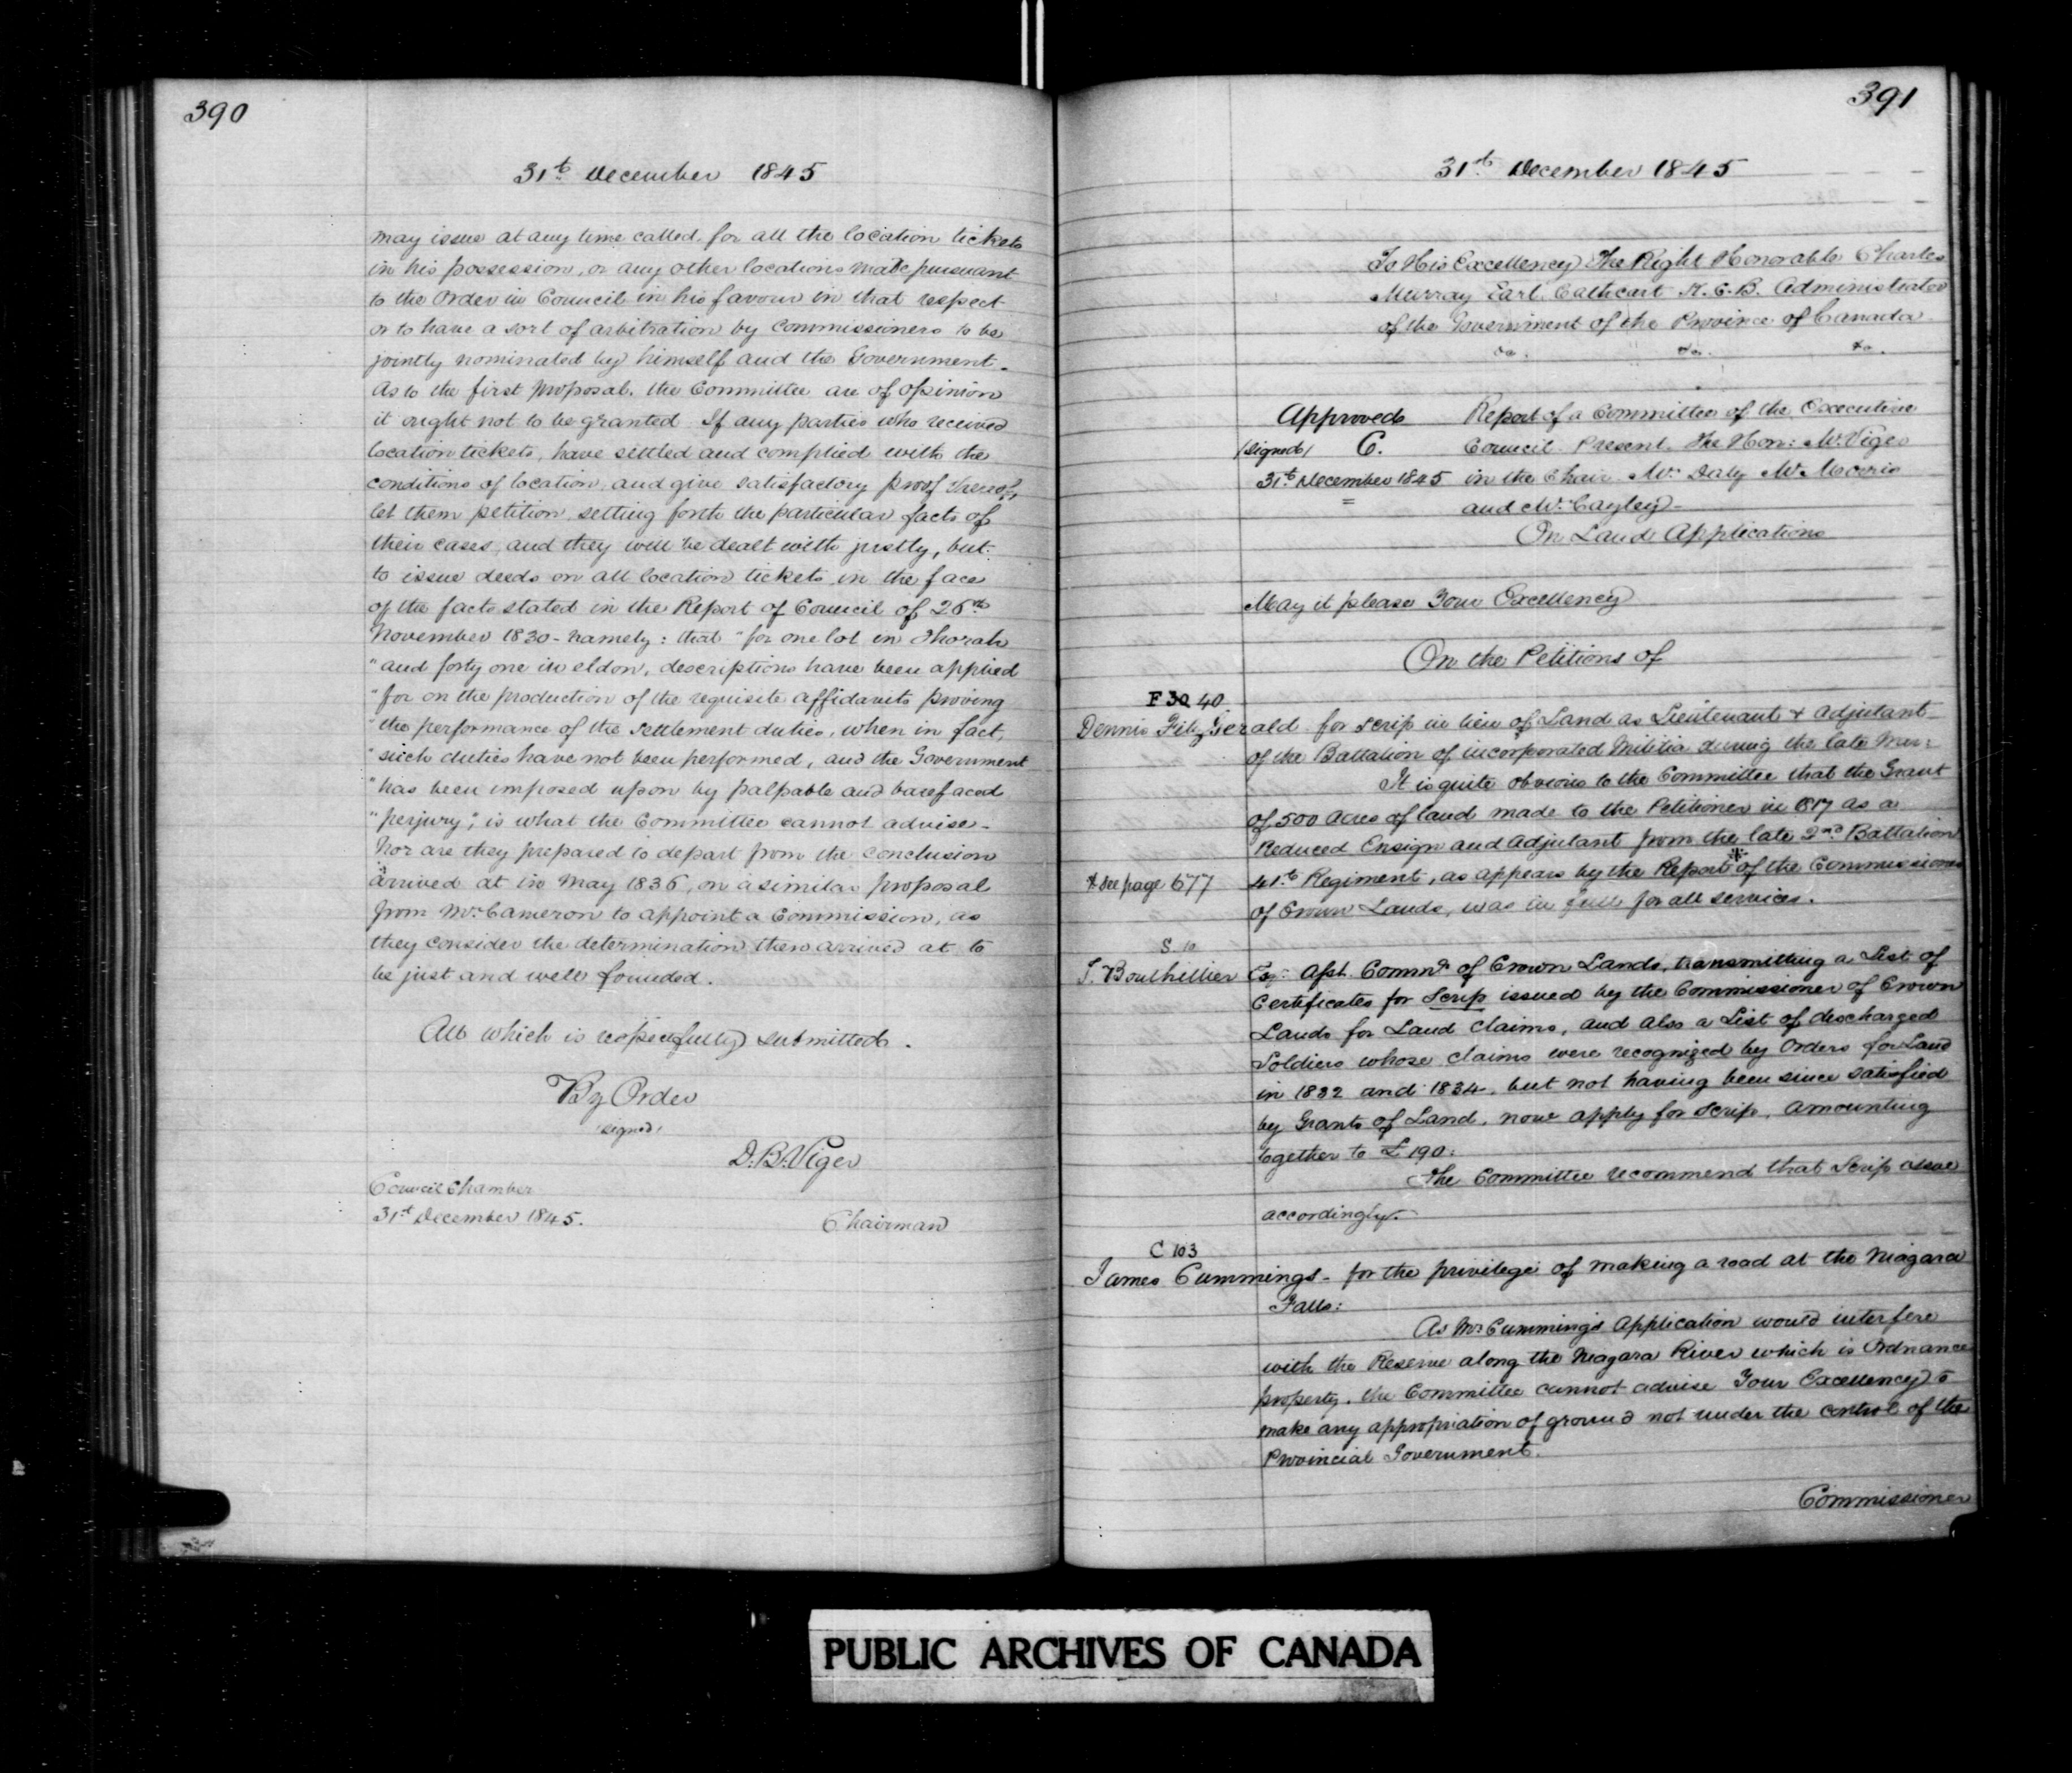 390
31st December 1845
may issue at any time called for all the location tickets
in his possession, or any other locations made pursuant
to the Order in Council in his favour in that respect
or to have a sort of arbitration by Commissioners to be
jointly nominated by himself and the Government.
As to the first proposal. the Committee are of opinion
it ought not to be granted If any parties who received
location tickets, have settled and complied with the
conditions of location, and give satisfactory proof thereof,
let them petition setting forth the particular facts of
their cases, and they will be dealt with justly, but
to issue deeds on all location tickets in the face
of the facts stated in the Report of Council of 26th
November 1830 - namely: that "for one lot in Thorah
"and forty one in eldon, descriptions have been applied
"for on the production of the requisite affidavits proving
"the performance of the settlement duties, when in fact,
"such duties have not been performed, and the Government
"has been imposed upon by palpable and barefaced
"perjury", is what the Committee cannot advise -
Nor are they prepared to depart from the conclusion
arrived at in May 1836, on a similar proposal
from Mr Cameron to appoint a Commission, as
they consider the determination then arrived at to
be just and well founded.
All which is respectfully submitted.
By Order
(signed)
D. B. Viger
Council Chamber
31st December 1845.
Chairman
391
31st December 1845
To His Excellency The Right Honorable Charles
Murray Earl Cathcart K.C.B. Administrator
of the Government of the Province of Canada
&a. &a. &a.
Approved Report of a Committee of the Executive
(signed) C. Council Present The Hon: Mr Viger
31st December 1845 in the Chair Mr Daly Mr Morris
and Mr Cayley -
On Land Applications
May it please Your Excellency
On the Petitions of
F 30 40
Dennis FitzGerald for scrip in lieu of Land as Lieutenant & Adjutant
of the Battalion of incorporated Militia during the late War:
It is quite obvious to the Committee that the Grant
of 500 Acres of land made to the Petitioner in 1817 as a
Reduced Ensign and Adjutant from the late 2nd Battalion
* see page 677 41st Regiment, as appears by the Report * of the Commissioner
of Crown Lands, was in full for all services.
S 10
T. Bouthillier Esqr Asst. Commr of Crown Lands, transmitting a List of
Certificates for Scrip issued by the Commissioner of Crown
Lands for Land Claims, and also a List of discharged
Soldiers whose claims were recognized by Orders for Land
in 1832 and 1834, but not having been since satisfied
by Grants of Land, now apply for Scrip, amounting
together to £190:
The Committee recommend that Scrip issue
accordingly.
C 103
James Cummings - for the privilege of making a road at the Niagara
Falls:
As Mr Cummings Application would interfere
with the Reserve along the Niagara River which is Ordnance
property, the Committee cannot advise Your Excellency to
make any appropriation of ground not under the control of the
Provincial Government.
Commissioner
PUBLIC ARCHIVES OF CANADA